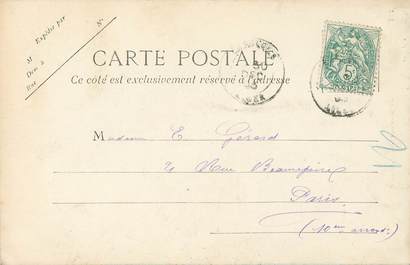 Expédiée par
M
Dem à
Rue
N°
CARTE POSTALE
Ce côté est exclusivement réservé à l'adresse
30
DEC
03
ALGER
5
Madame E. Gérard
Rue Beaurepaire
Paris
(10em arrond.)
21